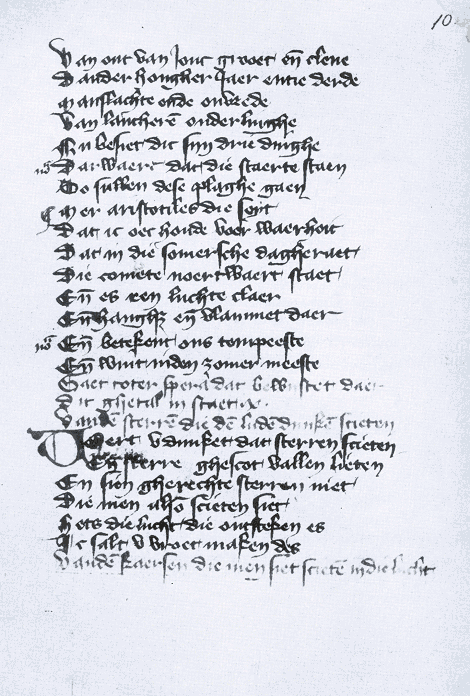 10
Van out van Jonc groet eñ clene
Dander hongher Jaer entie derde
manslachte ende onvrede
Van lancherē onderlinghe
Nu besiet dit sijn drie dinghe
Darwaert dat die staerte staen
Do sullen dese plaghe gaen
Mer aristotiles die seyt
Dat ic oec houde voer waerheit
Dat in die somersche dagheraet
Die comete noertwaert staet
Eñ es een luchte claer
Eñ eñ vlammet daer
Eñ betekent ons tempeeste
Eñ wint inden zomer meeste
Gaet toter spera dat daer
dit ghetal in staet
Vandē sterrē die dē ludē dunkē scieten
Oert v dunket dat sterren scieten
Eñ sterre ghescot vallen lieten
En sijn gherechte sterren niet
Die men also scieten siet
Hets die lucht die ontsteken es
Ic salt v vroet maken des
Vandē kaersen die men siet scietē in die lucht